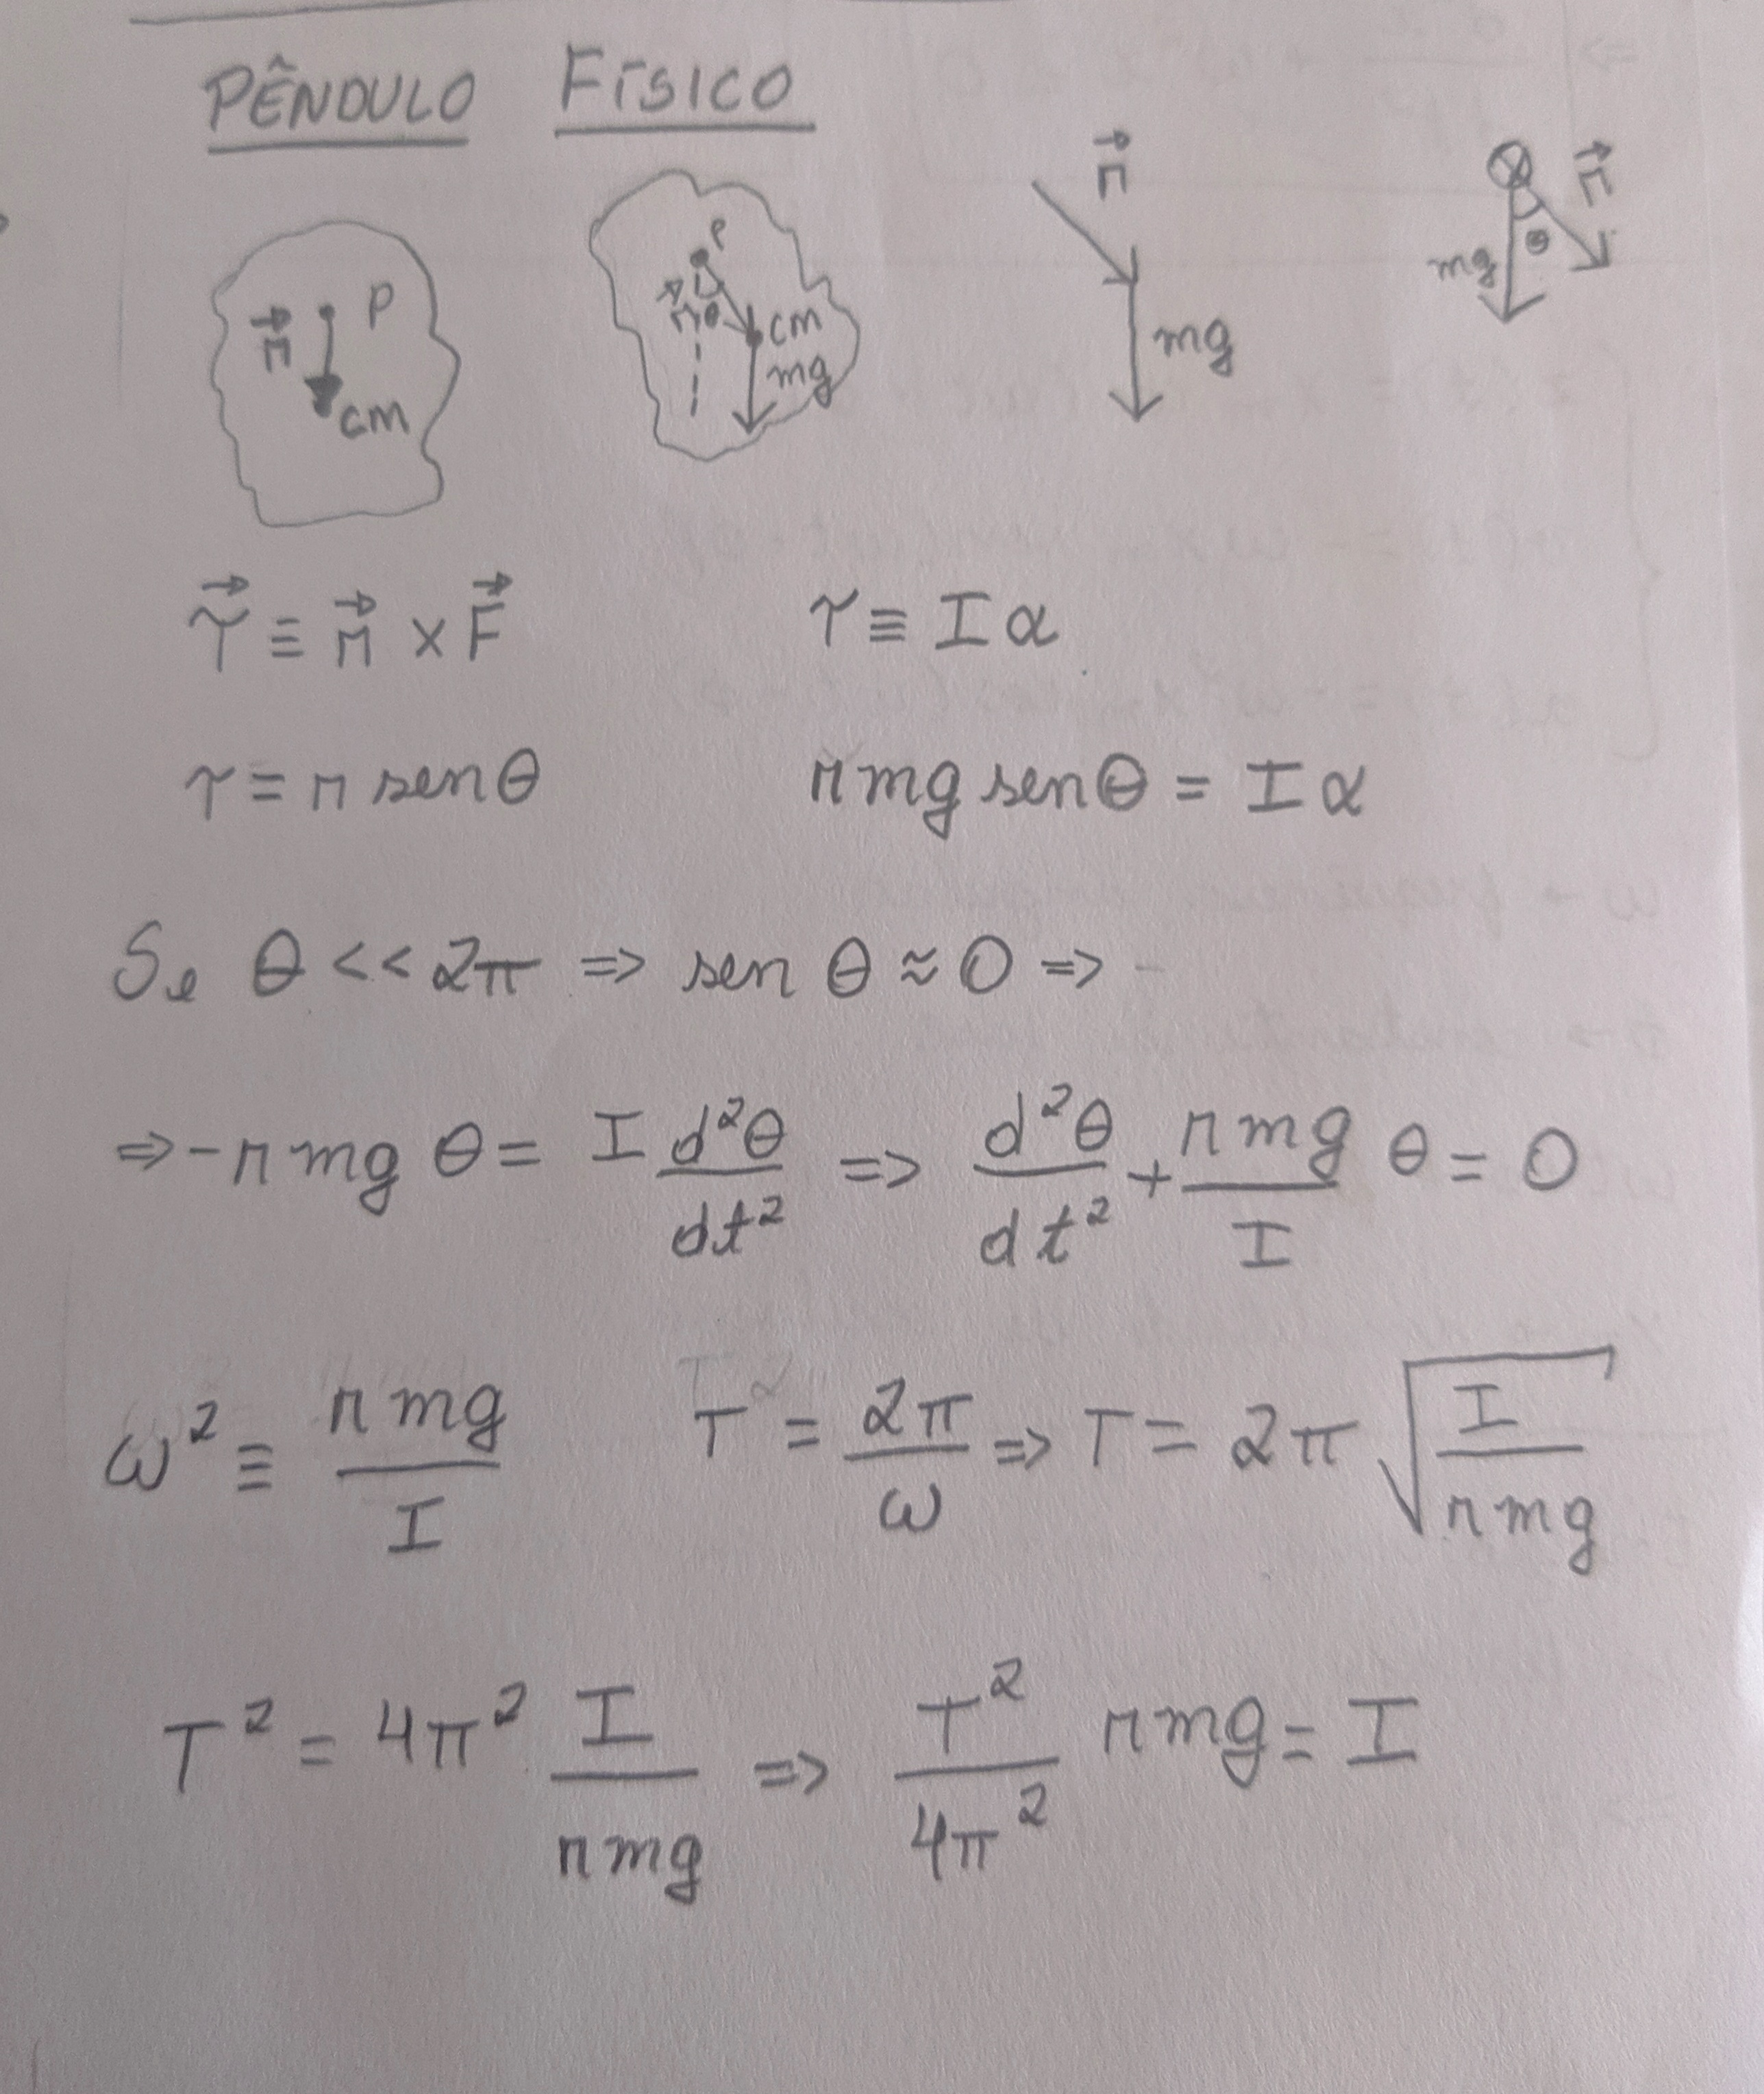 PÊNDULO FÍSICO
r⃗ P cm
P r⃗ θ cm mg
r⃗ mg
r⃗ θ mg
τ⃗ ≡ r⃗ × F⃗   τ ≡ I α
τ = r sen θ   r mg sen θ = I α
Se θ << 2π => sen θ ≈ 0 =>
=> - r mg θ = I d²θ/dt² => d²θ/dt² + r mg/I θ = 0
ω² ≡ r mg/I   T = 2π/ω => T = 2π √(I/r mg)
T² = 4π² I/r mg => T²/4π² r mg = I